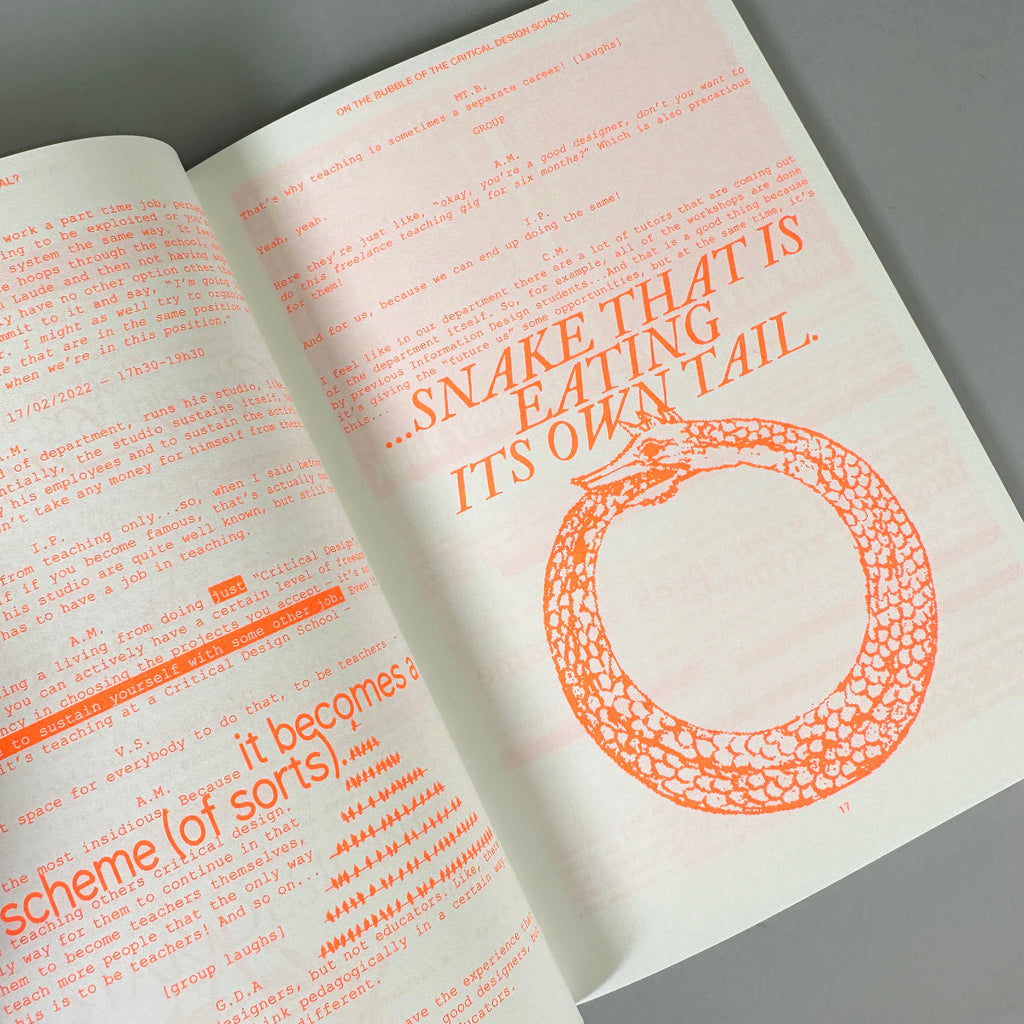 AL?
work a part time job,
ing to be exploited or
system the same way. It
e hoops through the school,
Laude and then not having
y have no other option other
mmit to it and say, "I'm going
r. I might as well try to
e that are in the same position
when we're in this position."
17/02/2022 — 17h30-19h30
A.M.
d of department, runs his studio,
entially, the studio sustains itself,
y his employees and to sustain the
n't take any money for himself from
I.P.
from teaching only...so, when I said before
f if you become famous, that's actually
his studio are quite well known, but still
has to have a job in teaching.
A.M.
ing a living from doing just "Critical Design"
you can actively have a certain level of
ncy in choosing the projects you accept — it's
to sustain yourself with some other job. Even
it's teaching at a Critical Design School —
V.S.
t space for everybody to do that, to be teachers —
A.M.
the most insidious. Because it becomes a
scheme (of sorts).
teaching others critical design.
ly way for them to continue in that
hem to become teachers themselves,
teach more people that the only way
his is to be teachers! And so on...
[group laughs]
G.D.A
esigners, but not educators. Like,
ink pedagogically in a certain way
different.
ve the experience
good designers,
ucators.
ON THE BUBBLE OF THE CRITICAL DESIGN SCHOOL
MT.B.
That's why teaching is sometimes a separate career! [laughs]
GROUP
Yeah, yeah.
A.M.
Here they're just like, "okay, you're a good designer, don't you want to
do this freelance teaching gig for six months?" Which is also precarious
for them!
I.P.
And for us, because we can end up doing the same!
C.M.
I feel like in our department there are a lot of tutors that are coming out
of the department itself. So, for example, all of the workshops are done
by previous Information Design students...And that is a good thing because
it's giving the "future us" some opportunities, but at the same time, it's
this...
...SNAKE THAT IS
EATING
ITS OWN TAIL.
17